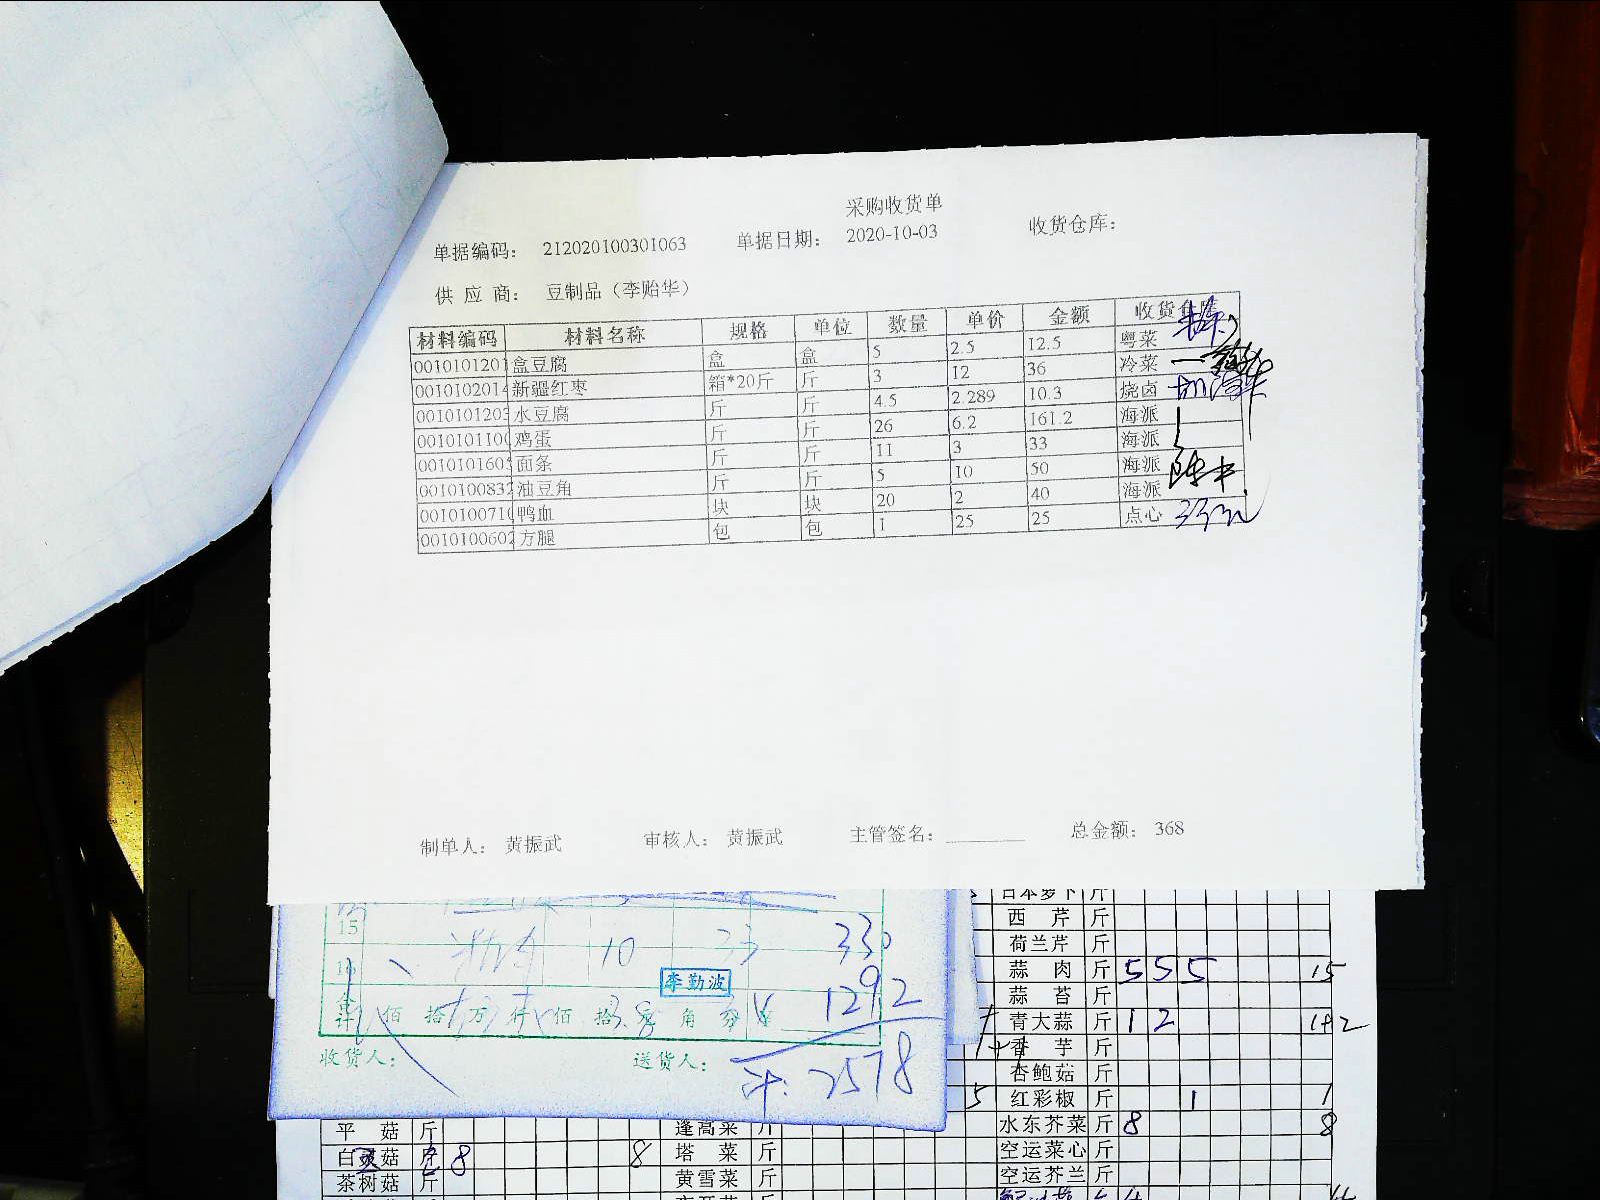 采购收货单
单据编码： 212020100301063 单据日期： 2020-10-03 收货仓库：
供 应 商： 豆制品（李贻华）
材料编码 材料名称 规格 单位 数量 单价 金额 收货
0010101201 盒豆腐 盒 盒 5 2.5 12.5 粤菜
0010102014 新疆红枣 箱*20斤 斤 3 12 36 冷菜
0010101203 水豆腐 斤 斤 4.5 2.289 10.3 烧卤
0010101100 鸡蛋 斤 斤 26 6.2 161.2 海派
0010101605 面条 斤 斤 11 3 33 海派
0010100832 油豆角 斤 斤 5 10 50 海派
0010100710 鸭血 块 块 20 2 40 海派
0010100602 方腿 包 包 1 25 25 点心
制单人： 黄振武 审核人： 黄振武 主管签名： 总金额： 368
15 10 33 330
16 1292
李勤波
合计 佰 拾 万 仟 佰 拾 元 角 分 ¥
收货人： 送货人： 计: 2578
日本萝卜 斤
西 芹 斤
荷兰芹 斤
蒜 肉 斤 5 5 5 15
蒜 苔 斤
青大蒜 斤 1 2 1+2
香 芋 斤
杏鲍菇 斤
5 红彩椒 斤 1 1
水东芥菜 斤 8 8
空运菜心 斤
空运芥兰 斤
平 菇 斤 蓬蒿菜 斤
白灵菇 8 8 塔 菜 斤
茶树菇 斤 黄雪菜 斤